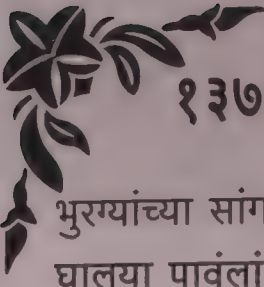 १३७
भुरग्यांच्या सांग
घालया पावंलां